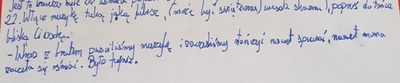 22. Włącz muzykę taką jaką lubisz, (może być świąteczna) wesoła skoczna), poproś do tańca
bliską Ci osobę.
- Wraz z bratem puściliśmy muzykę i zaczęliśmy tańczyć nawet śpiewać, nawet mama
zaczęła się śmiać. Było fajnie.